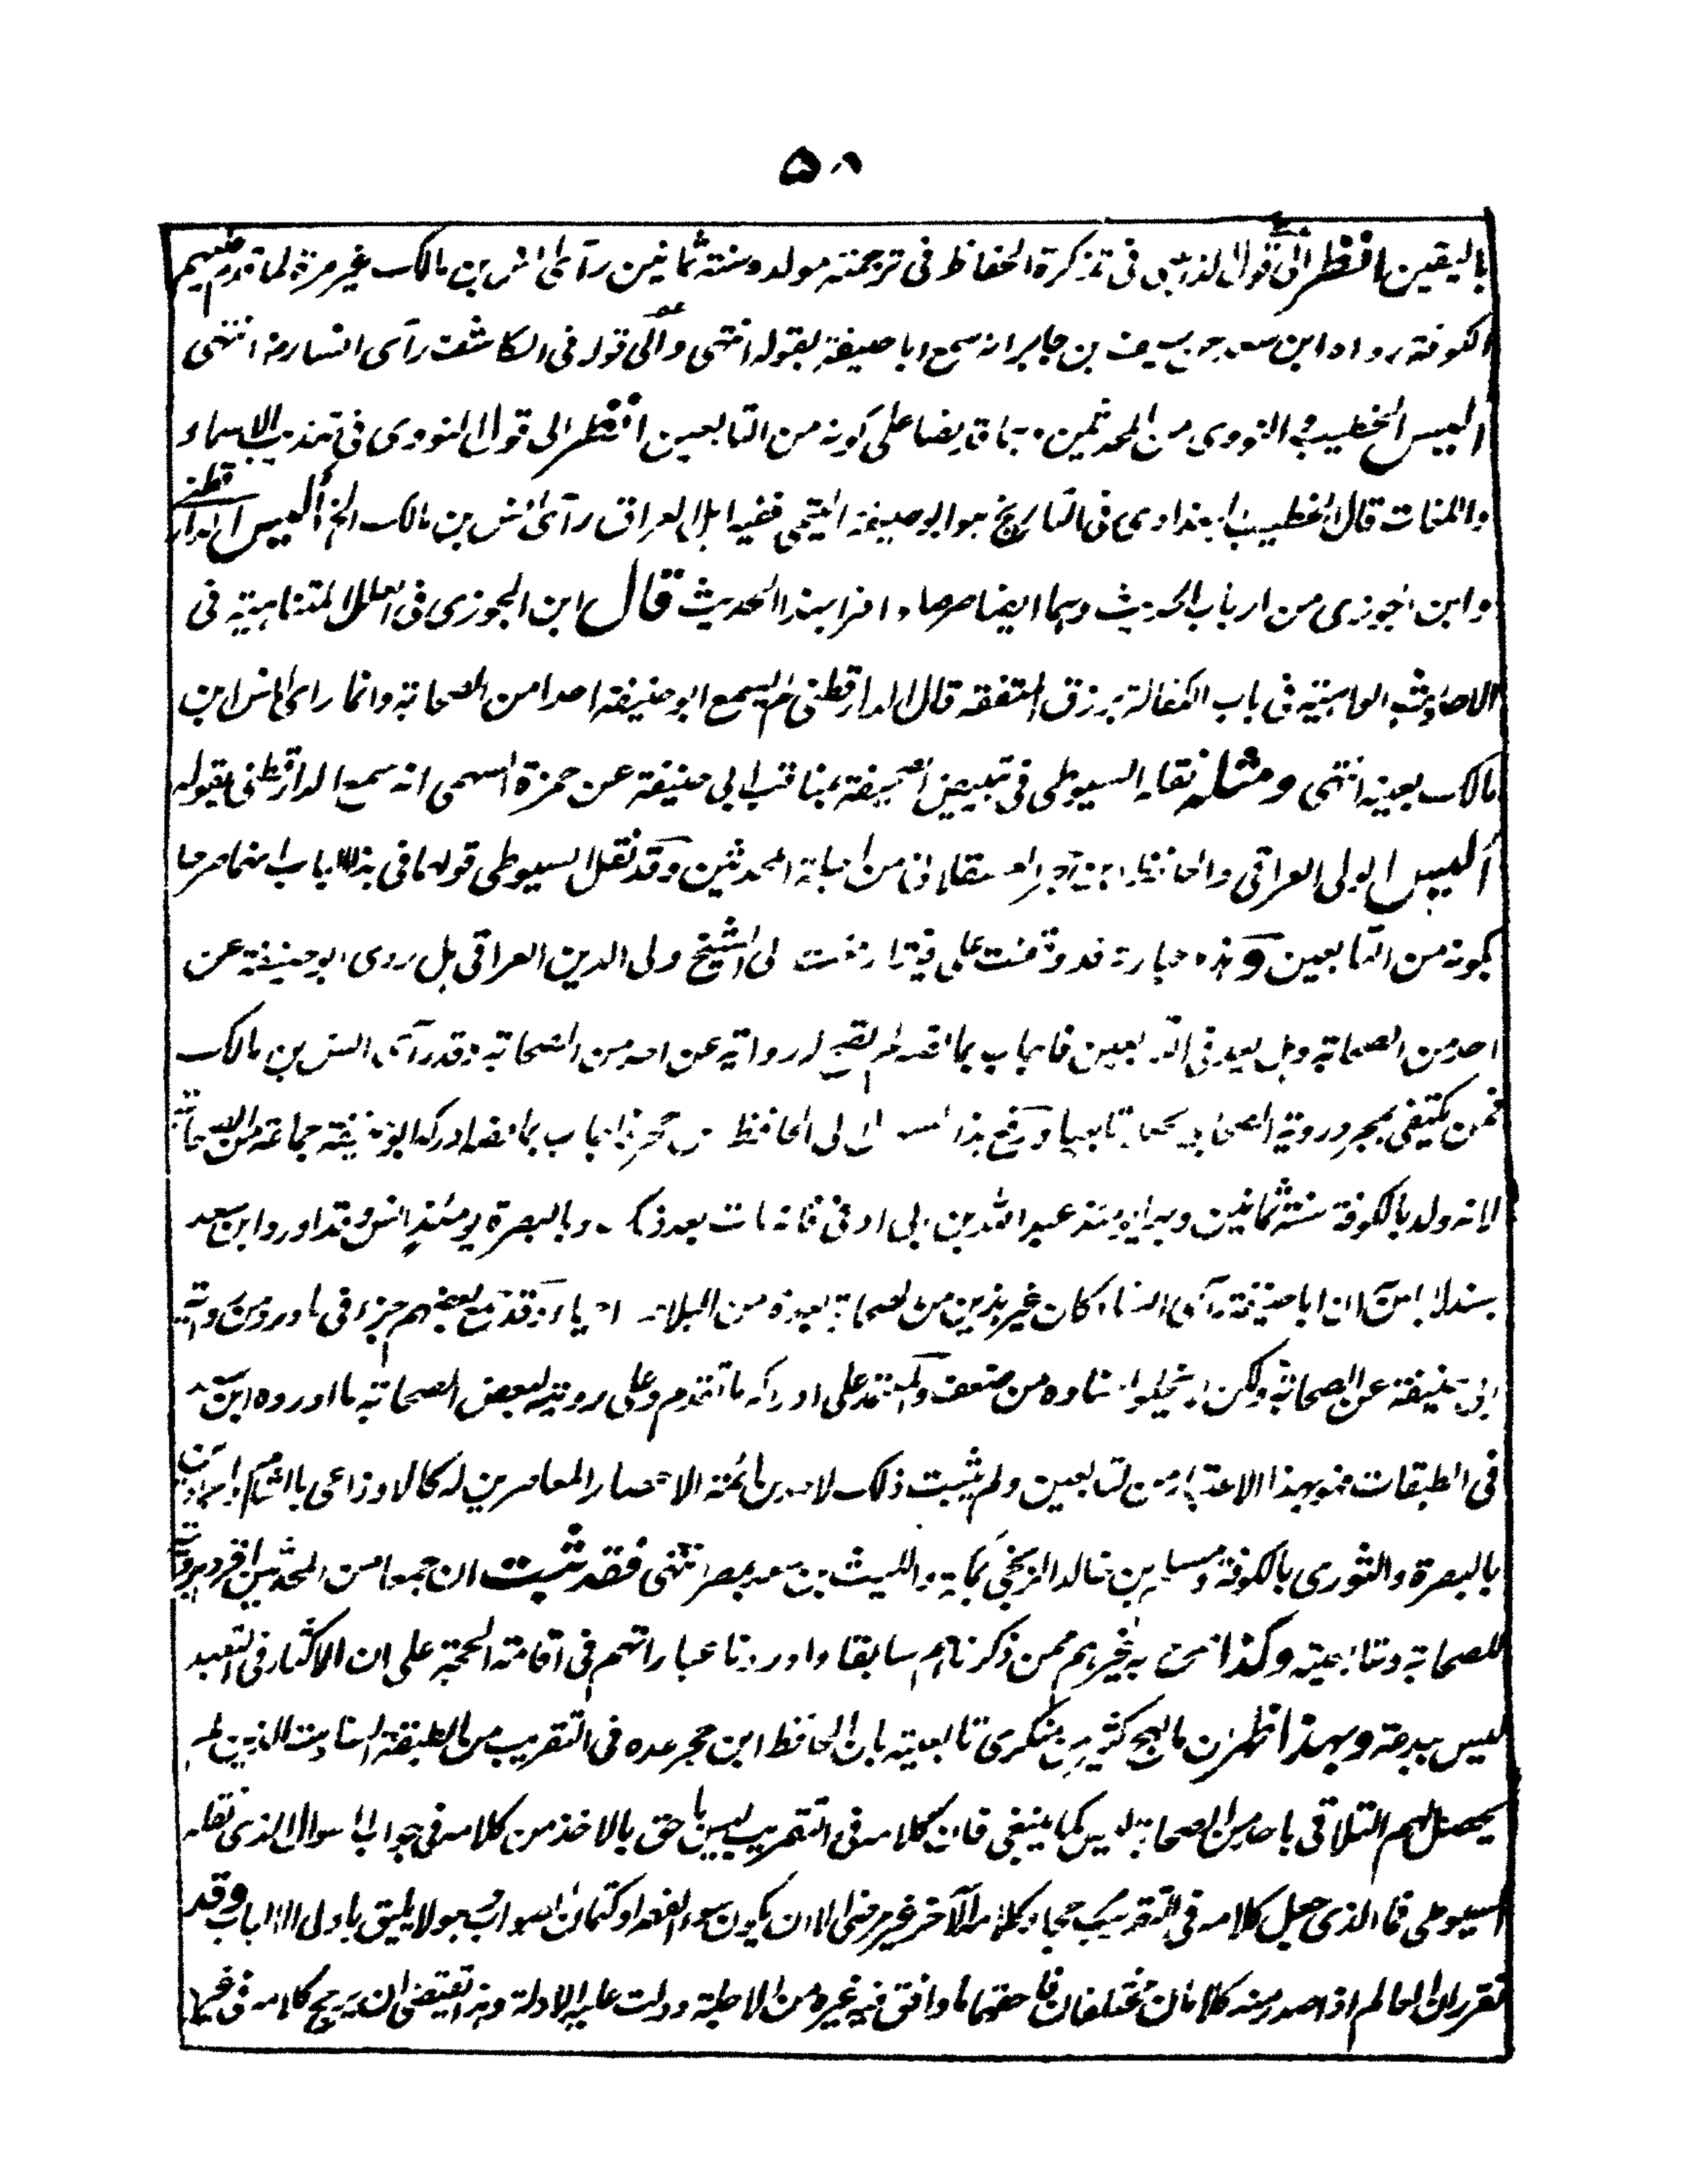 ٥٨
باليقين انظر الى قول الذهبى فى تذكرة الحفاظ فى ترجمته مولده سنة ثمانين رآى انس بن مالك غير مرة لما قدم عليهم
الكوفة رواه ابن سعد عن سيف بن جابر انه سمع ابا حنيفة يقوله انتهى والى قوله فى الكاشف رآى انسا رضه انتهى
أليس الخطيب والنووى من المحدثين وقد ايضا على كونه من التابعين انظر الى قول النووى فى تهذيب الاسماء
واللغات قال الخطيب البغدادى فى التاريخ هو ابو حنيفة التيمى فقيه اهل العراق رآى انس بن مالك الخ أليس الدارقطنى
وابن الجوزى من ارباب الحديث وهما ايضا صرحا واقرا بهذا الحديث قال ابن الجوزى فى العلل المتناهية فى
الاحاديث الواهية فى باب الكفالة برزق المتفقه قال الدارقطنى لم يسمع ابو حنيفة احدا من الصحابة وانما رآى انس ابن
مالك بعينه انتهى ومثله نقله السيوطى فى تبييض الصحيفة بمناقب ابى حنيفة عن حمزة السهمى انه سمع الدارقطنى يقوله
أليس الولى العراقى والحافظ ابن حجر العسقلانى من اجلة المحدثين وقد نقل السيوطى قولهما فى هذا الباب انهما صرحا
بكونه من التابعين وهذه عبارته قد وقفت على فتيا رفعت الى الشيخ ولى الدين العراقى هل روى ابو حنيفة عن
احد من الصحابة وهل يعد فى التابعين فاجاب بما نصه لم يصح له رواية عن احد من الصحابة وقد رآى انس بن مالك
فمن يكتفى بمجرد روية الصحابى يجعله تابعيا ورفع هذا السوال الى الحافظ ابن حجر فاجاب بما نصه ادرك ابو حنيفة جماعة من الصحابة
لانه ولد بالكوفة سنة ثمانين وبها يومئذ عبد الله بن ابى اوفى فانه مات بعد ذلك وبالبصرة يومئذ انس وقد اورد ابن سعد
بسند لا باس به ان ابا حنيفة رآى انسا وكان غير هذين من الصحابة بعده من البلاد احياء وقد جمع بعضهم جزء فى ما ورد من رواية
ابى حنيفة عن الصحابة ولكن لا يخلو اسناده من ضعف والمعتمد على ادراكه ما تقدم وعلى رويته لبعض الصحابة ما اورده ابن سعد
فى الطبقات فهو بهذا الاعتبار من التابعين ولم يثبت ذلك لاحد من ائمة الامصار المعاصرين له كالاوزاعى بالشام والحمادين
بالبصرة والثورى بالكوفة ومسلم بن خالد الزنجى بمكة والليث بن سعد بمصر انتهى فقد ثبت ان جمعا من المحدثين اقروا برويته
للصحابة وتابعيته وكذا من غيرهم ممن ذكرناهم سابقا واوردنا عباراتهم فى اقامة الحجة على ان الاكثار فى التعبد
ليس ببدعة وبهذا ظهر ان ما لهج كثير من منكرى تابعيته بان الحافظ ابن حجر عده فى التقريب من الطبقة السادسة الذين لم
يحصل لهم التلاقى باحد من الصحابة ليس كما ينبغى فان كلامه فى التقريب ليس باحق بالاخذ من كلامه فى جواب السوال الذى نقله
السيوطى فما الذى جعل كلامه فى التقريب مجابا وكلامه الآخر غير مرضى الا ان يكون سوء الفهم او كتمان الصواب وهو لا يليق باولى الالباب وقد
تقرر ان العالم اذا صدر منه كلامان مختلفان فاحقهما ما وافق فيه غيره من الاجلة ودلت عليه الادلة وهذا يقتضى ان يرجح كلامه فى غير